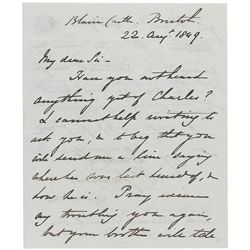 Blair Cott. Bristol.
22 Augt 1849.
My dear Sir -
Have you not heard
anything yet of Charles?
I cannot help writing to
ask you, & to beg that you
will send me a line saying
where he was last heard of, &
how he is. Pray excuse
my troubling you again,
but your brother will